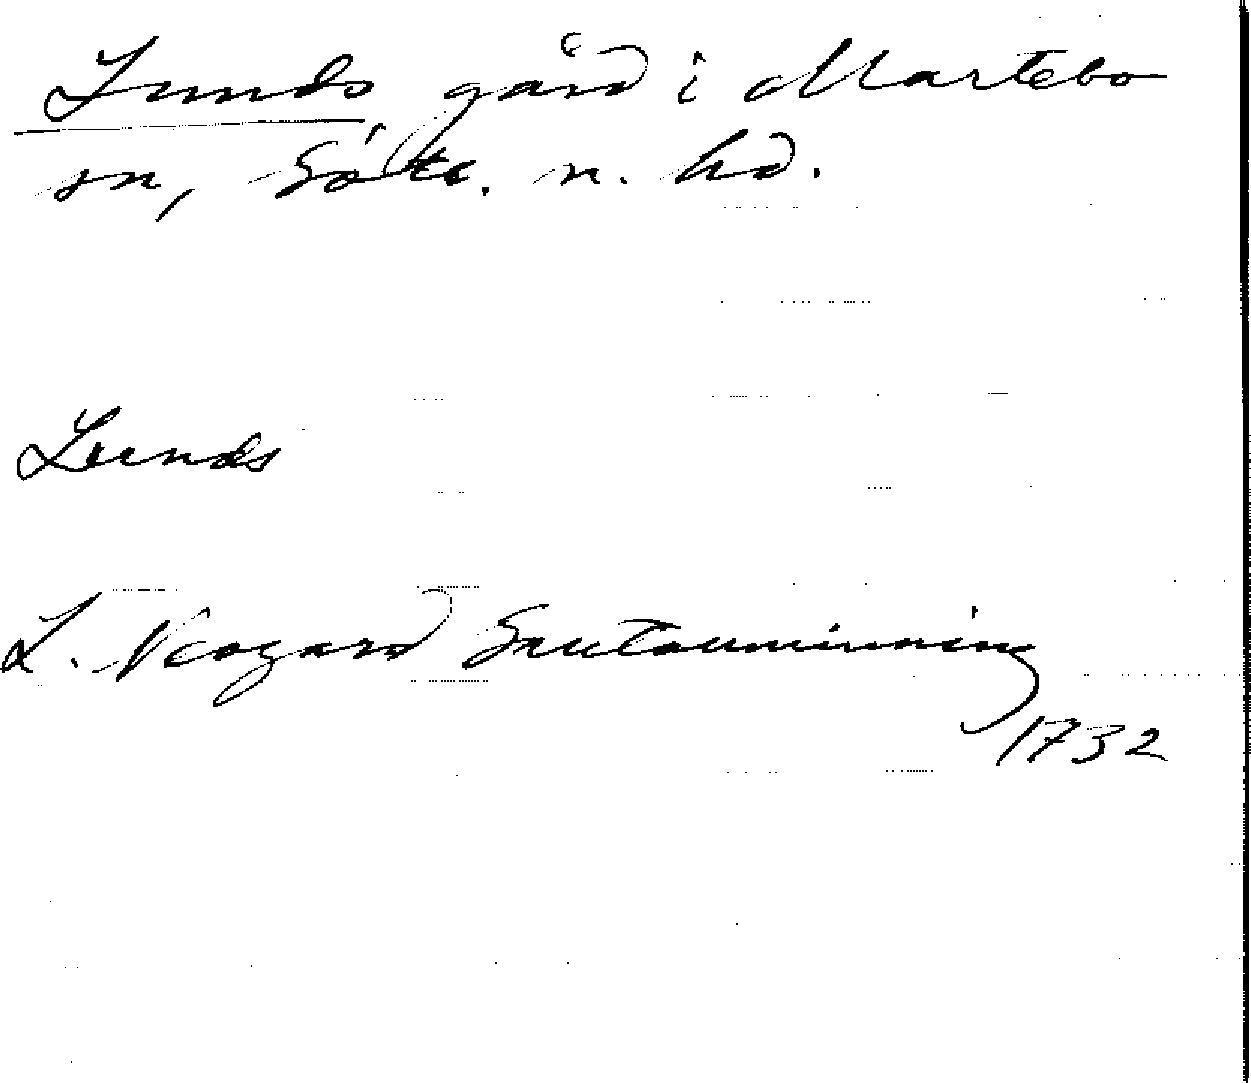 Lunds gård i Martebo
sn, Gotl. n. hd.
Lunds
L. Neogard Gautauminning
1732